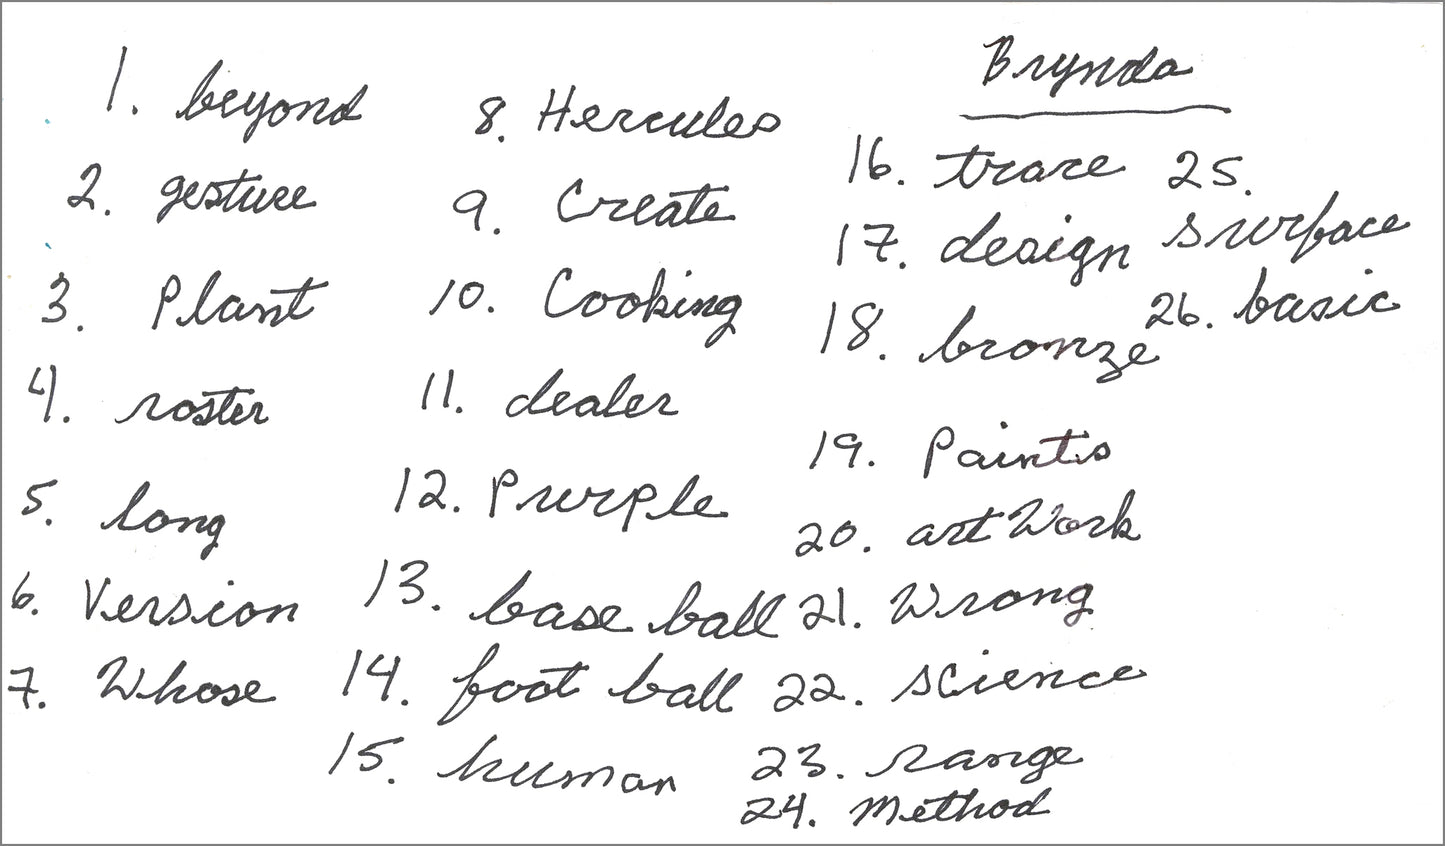 Brynda
1. beyond
2. gesture
3. Plant
4. roster
5. long
6. Version
7. Whose
8. Hercules
9. Create
10. Cooking
11. dealer
12. Purple
13. base ball
14. foot ball
15. human
16. trace
17. design
18. bronze
19. Paints
20. art Work
21. Wrong
22. science
23. range
24. Method
25.
surface
26. basic